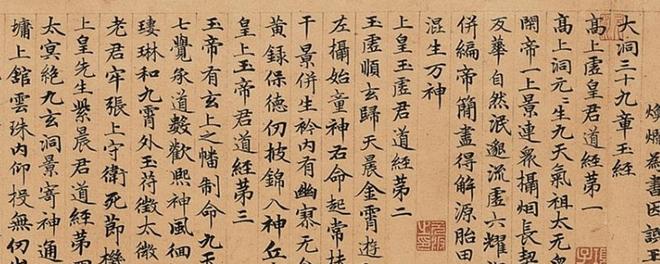 為書因讀玉
大洞三十九章玉經
髙上虛皇君道經第一
髙上洞元〻生九天氣祖太无
開帝一上景連衆攝烟長契
友華自然泯邈流虛六耀
併編帝簡盡得解源胎田
混生万神
上皇玉虛君道經第二
玉虛順玄歸天晨金霄遊
左攝始童神右命起常扶
干景併生衿内有幽寥无
黄籙保德仞披錦八神丘
皇上玉帝君道經第三
玉帝有玄上之幡制命九
七覺承道數歡熙神風徊
瓊琳和九霄外玉苻徵太微
老君宰張上守衛死節機
上皇先生紫晨君道經第四
太冥絕九玄洞景寄神通
墉上館雲珠内仰投無仞